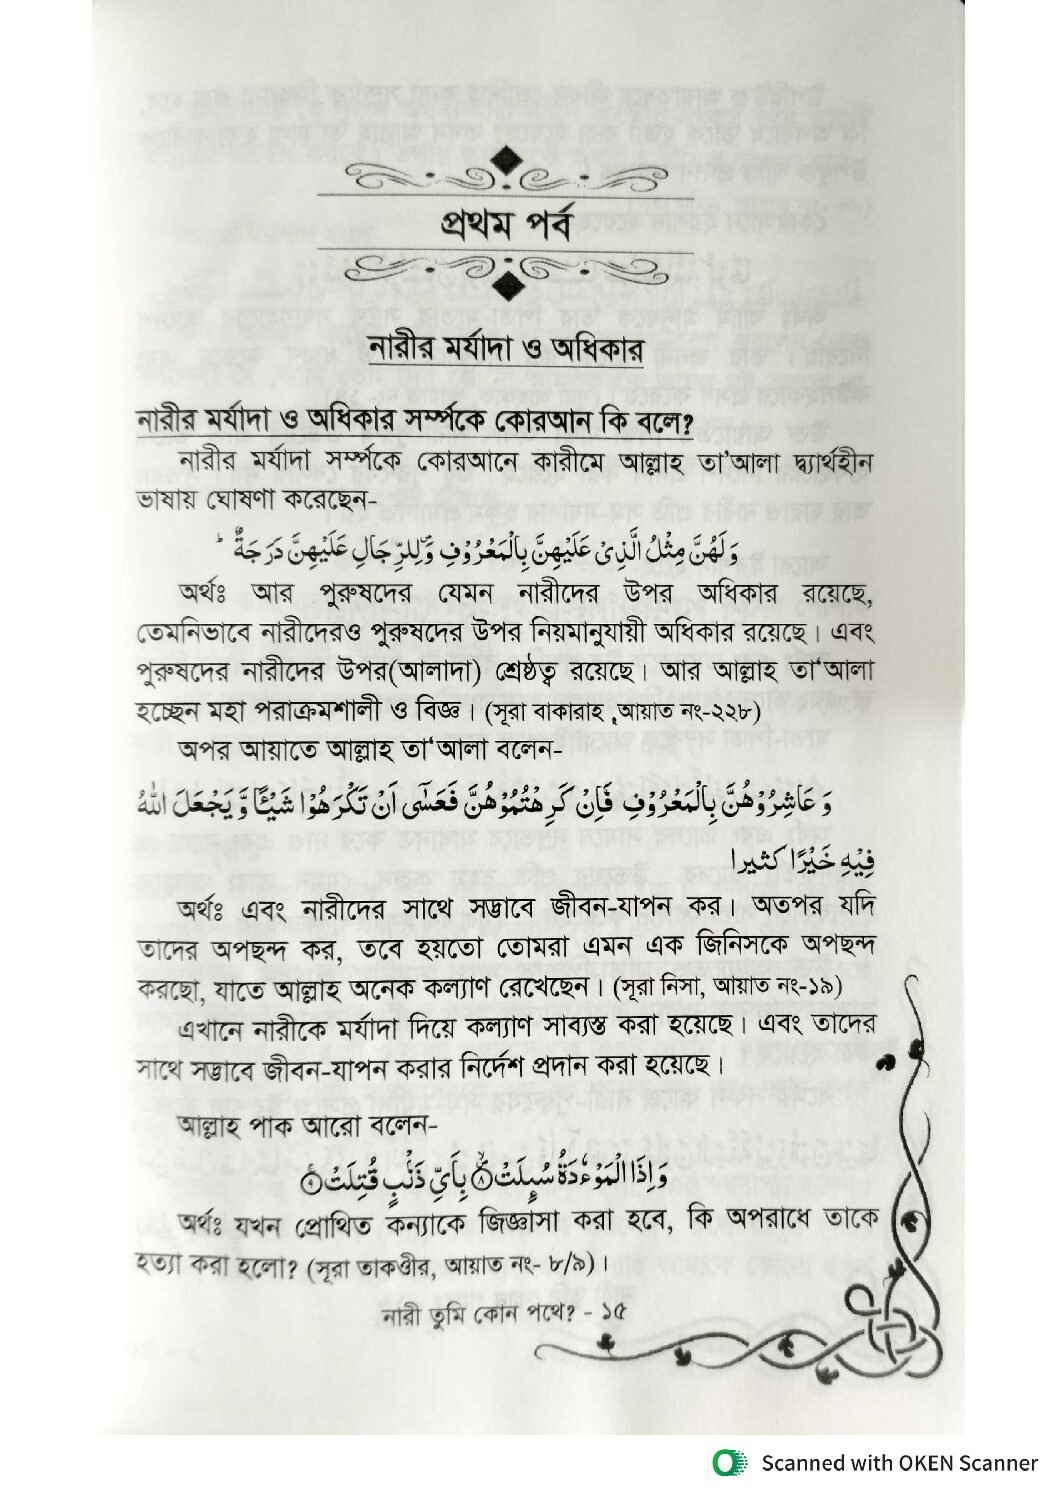 প্রথম পর্ব
নারীর মর্যাদা ও অধিকার
নারীর মর্যাদা ও অধিকার সর্ম্পকে কোরআন কি বলে?
নারীর মর্যাদা সর্ম্পকে কোরআনে কারীমে আল্লাহ তা'আলা দ্ব্যার্থহীন
ভাষায় ঘোষণা করেছেন-
وَلَهُنَّ مِثْلُ الَّذِىْ عَلَيْهِنَّ بِالْمَعْرُوْفِ وَلِلرِّجَالِ عَلَيْهِنَّ دَرَجَةٌ ؕ
অর্থঃ আর পুরুষদের যেমন নারীদের উপর অধিকার রয়েছে,
তেমনিভাবে নারীদেরও পুরুষদের উপর নিয়মানুযায়ী অধিকার রয়েছে। এবং
পুরুষদের নারীদের উপর(আলাদা) শ্রেষ্ঠত্ব রয়েছে। আর আল্লাহ তা‘আলা
হচ্ছেন মহা পরাক্রমশালী ও বিজ্ঞ। (সূরা বাকারাহ ,আয়াত নং-২২৮)
অপর আয়াতে আল্লাহ তা‘আলা বলেন-
وَعَاشِرُوْهُنَّ بِالْمَعْرُوْفِ فَاِنْ كَرِهْتُمُوْهُنَّ فَعَسٰٓى اَنْ تَكْرَهُوْا شَيْئًا وَّيَجْعَلَ اللّٰهُ
فِيْهِ خَيْرًا كثيرا
অর্থঃ এবং নারীদের সাথে সদ্ভাবে জীবন-যাপন কর। অতপর যদি
তাদের অপছন্দ কর, তবে হয়তো তোমরা এমন এক জিনিসকে অপছন্দ
করছো, যাতে আল্লাহ অনেক কল্যাণ রেখেছেন। (সূরা নিসা, আয়াত নং-১৯)
এখানে নারীকে মর্যাদা দিয়ে কল্যাণ সাব্যস্ত করা হয়েছে। এবং তাদের
সাথে সদ্ভাবে জীবন-যাপন করার নির্দেশ প্রদান করা হয়েছে।
আল্লাহ পাক আরো বলেন-
وَاِذَا الْمَوْءٗدَةُ سُىِٕلَتْ ۪ۙ۸ بِاَىِّ ذَنْۢبٍ قُتِلَتْ ۚ۹
অর্থঃ যখন প্রোথিত কন্যাকে জিজ্ঞাসা করা হবে, কি অপরাধে তাকে
হত্যা করা হলো? (সূরা তাকওীর, আয়াত নং- ৮/৯)।
নারী তুমি কোন পথে? - ১৫
Scanned with OKEN Scanner